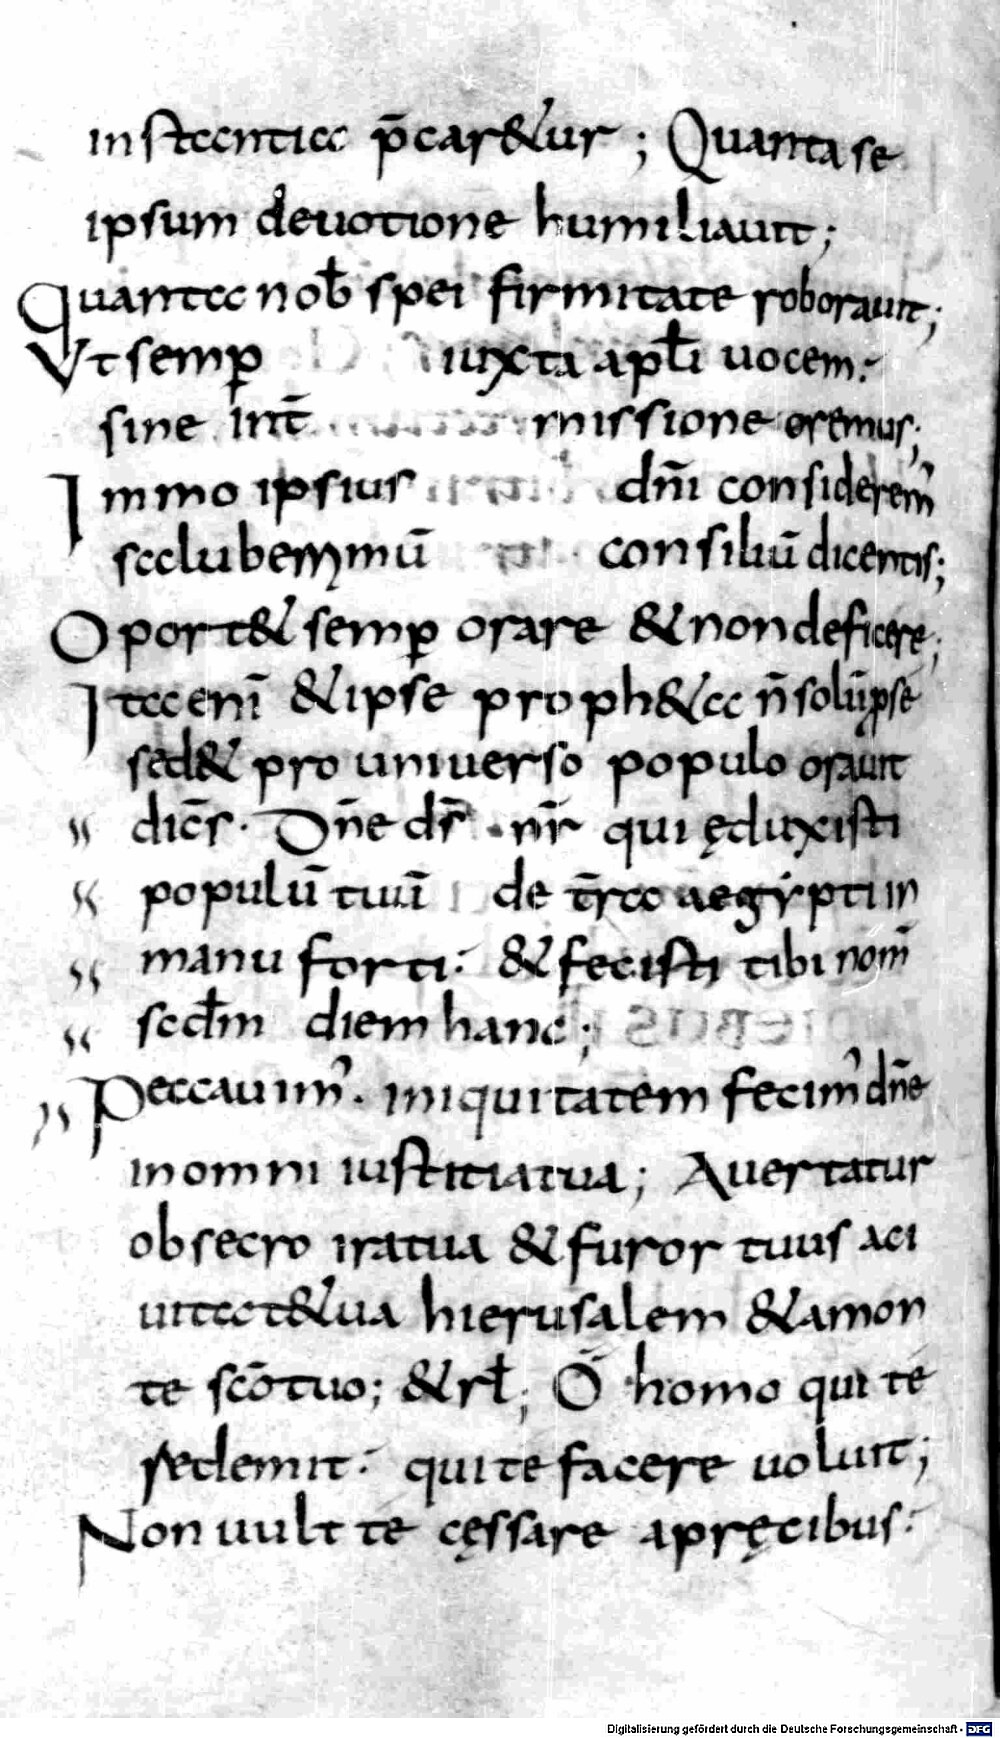 instantia p̄car&ur; Quanta se
ipsum deuotione humiliauit;
Quanta nob̄ spei firmitate roborauit;
Vt semꝑ iuxta apłi uocem:
sine int̄ rmissione oremus;
Immo ipsius dn̄i considerem᾽
salubernmū consiliū dicentis;
Oport& semꝑ orare & non deficere;
Ita enī & ipse proph&a n̄ solū ꝓ se
sed & pro uniuerso populo orauit
dic̄s. Dn̄e ds̄ . nr̄ qui ęduxisti
populū tuū de t̄ra aegẏpti in
manu forti: & fecisti tibi nom̄
scd̄m diem hanc;
Peccauim᾽. iniquitatem fecim᾽ dn̄e
in omni iustitia tua; Auertatur
obsecro ira tua & furor tuus aci
uitate tua hierusalem & amon
te sc̄o tuo; & rł; O homo qui te
redemit: qui te facere uoluit;
Non uult te cęssare a pręcibus:
Digitalisierung gefördert durch die Deutsche Forschungsgemeinschaft - DFG